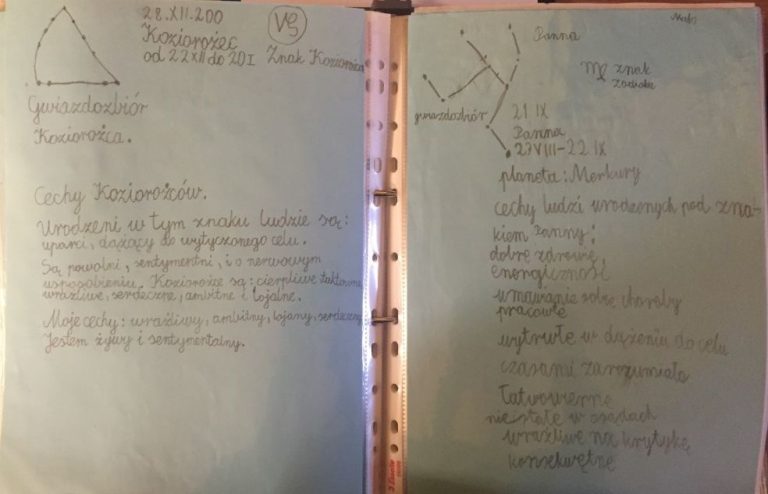 28.XII.200
Koziorożec
od 22XII do 20I
Znak Koziorożca
Gwiazdozbiór
Koziorożca.
Cechy Koziorożców.
Urodzeni w tym znaku ludzie są:
uparci, dążący do wytyczonego celu.
Są powolni, sentymentni, i o nerwowym
usposobieniu. Koziorożce są: cierpliwe
wrażliwe, serdeczne, ambitne i lojalne.
Moje cechy: wrażliwy, ambitny, lojany,
Jestem żywy i sentymentalny.
Panna
znak
zodiaku
gwiazdozbiór
21 IX
Panna
23VIII-22 IX
planeta: Merkury
cechy ludzi urodzonych pod zna-
kiem Panny:
dobre zdrowie
energiczność
umawianie sobie choroby
pracowite
wytrwłe w dążeniu do celu
czasami zarozumiałe
łatwowierne
nie stałe w osądach
wrażliwe na krytykę
konsekwętne